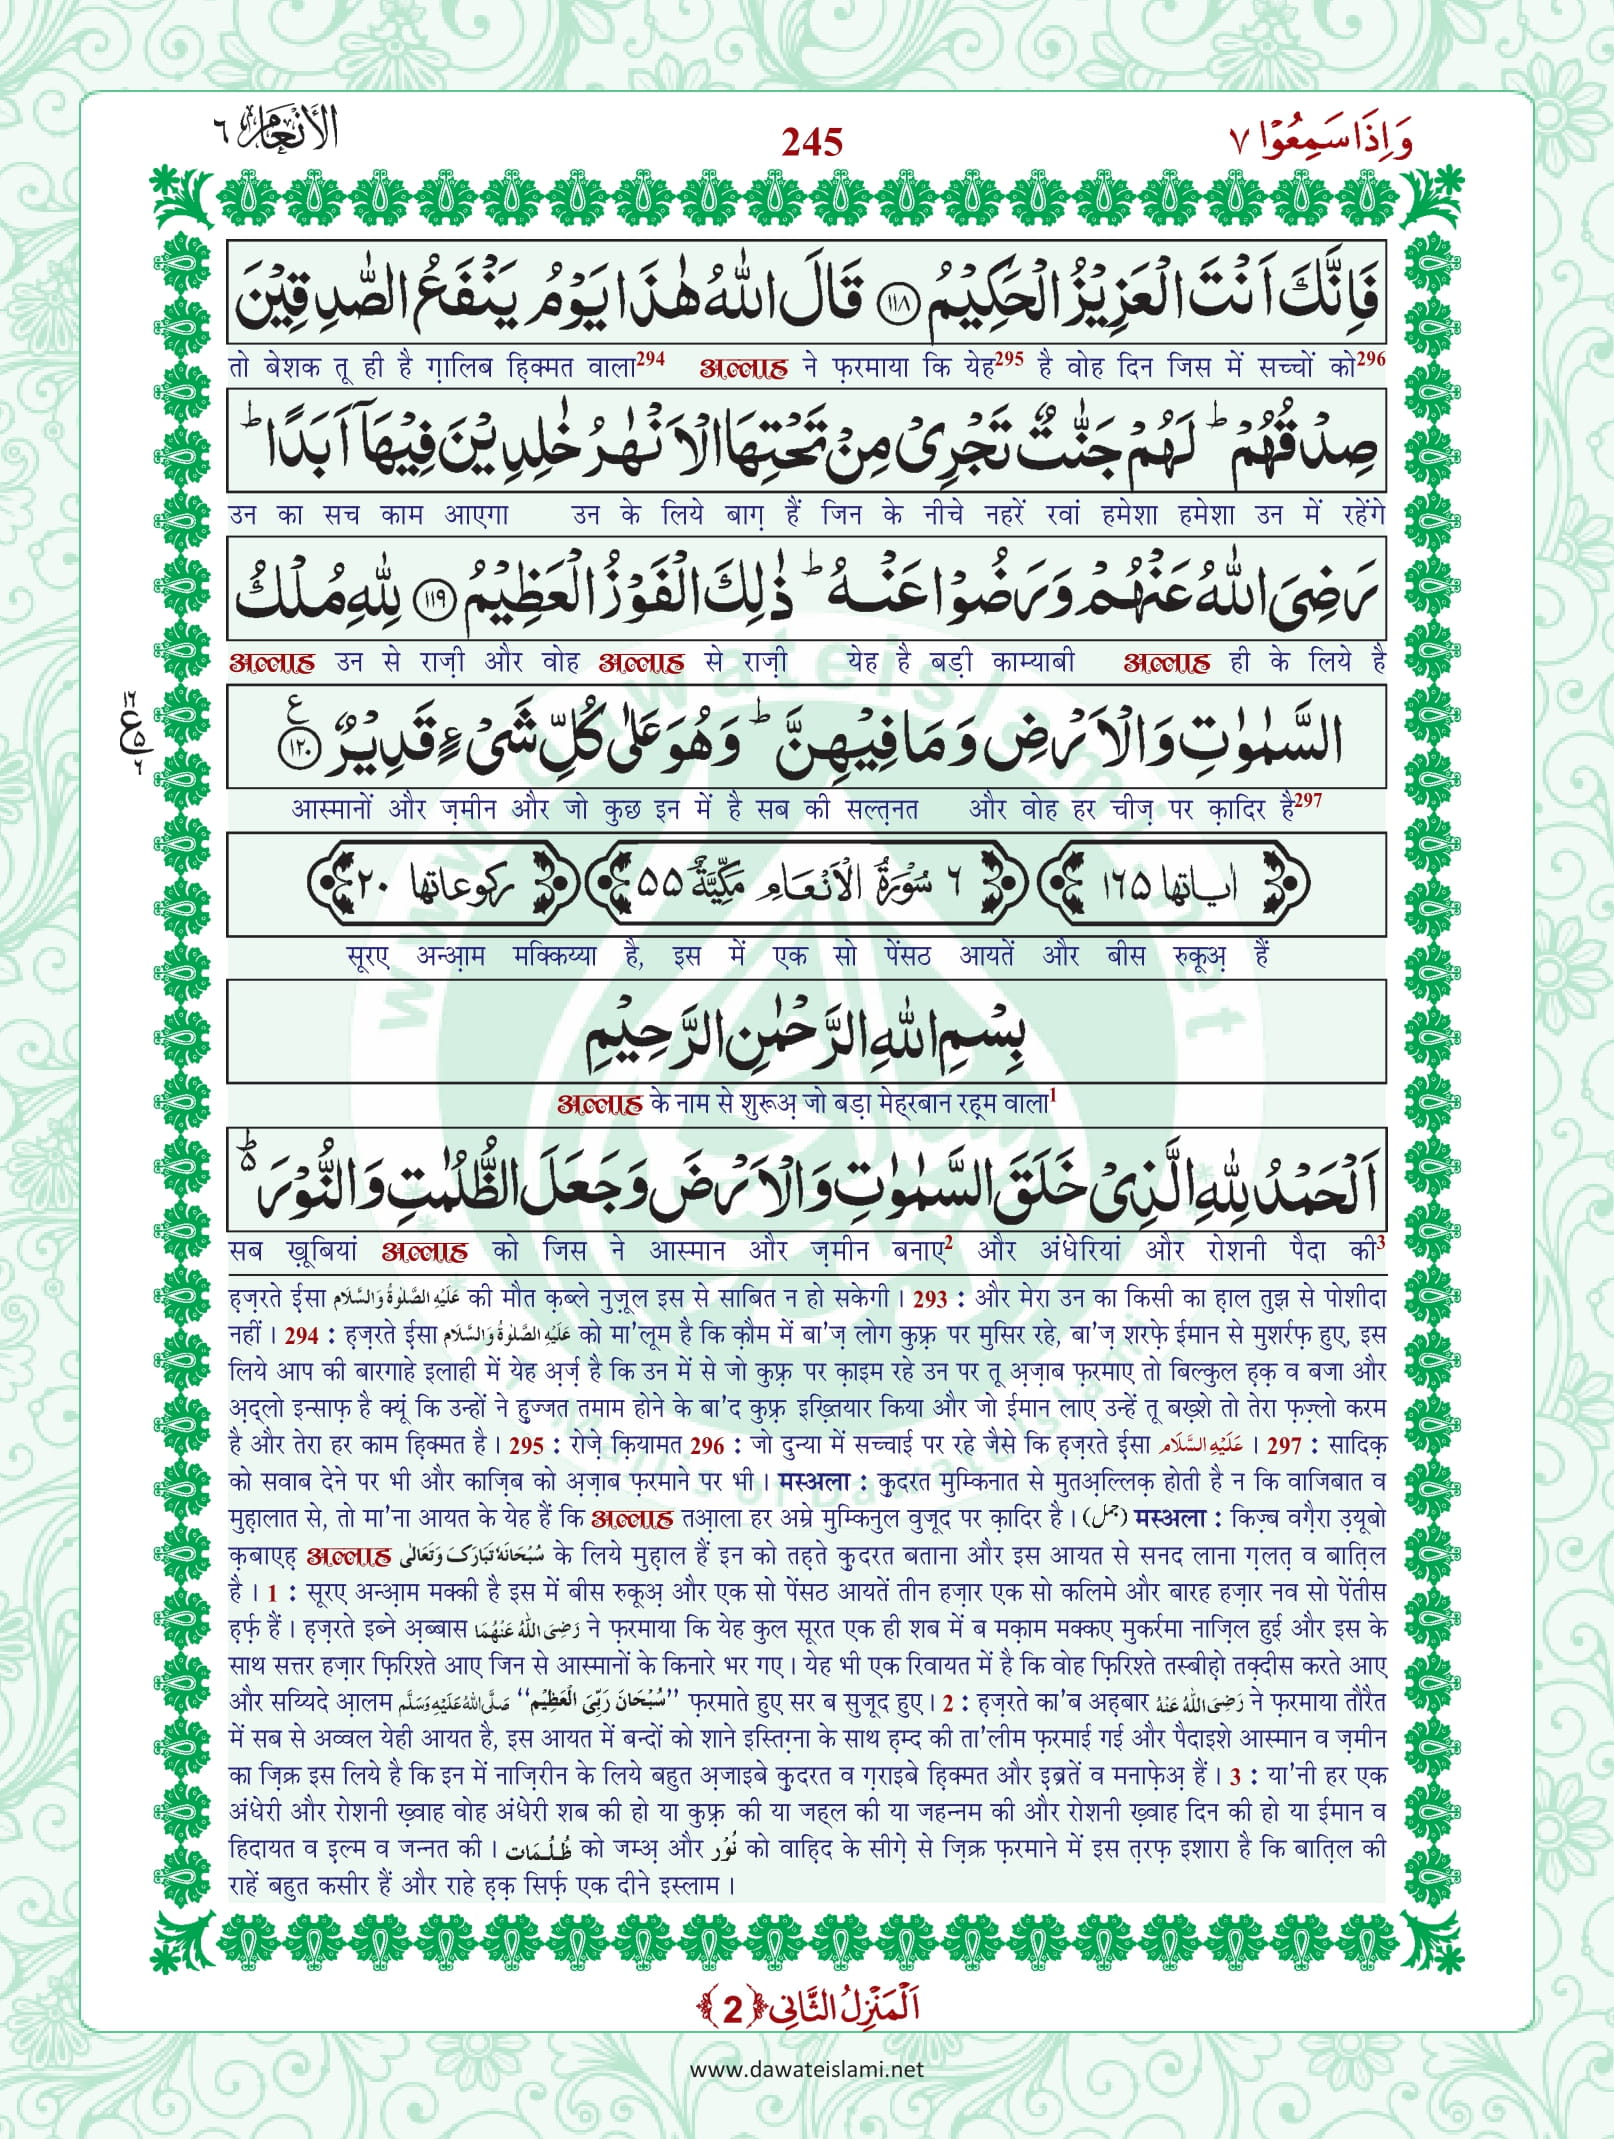 وَاِذَا سَمِعُوْا ٧
245
الْاَنْعَام ٦
فَاِنَّكَ اَنْتَ الْعَزِيْزُ الْحَكِيْمُ ﴿١١٨﴾ قَالَ اللّٰهُ هٰذَا يَوْمُ يَنْفَعُ الصّٰدِقِيْنَ
तो बेशक तू ही है ग़ालिब हि़क्मत वाला294 अल्लाह ने फ़रमाया कि येह295 है वोह दिन जिस में सच्चों को296
صِدْقُهُمْ ؕ لَهُمْ جَنّٰتٌ تَجْرِیْ مِنْ تَحْتِهَا الْاَنْهٰرُ خٰلِدِيْنَ فِيْهَاۤ اَبَدًا ؕ
उन का सच काम आएगा उन के लिये बाग़ हैं जिन के नीचे नहरें रवां हमेशा हमेशा उन में रहेंगे
رَضِیَ اللّٰهُ عَنْهُمْ وَرَضُوْا عَنْهُ ؕ ذٰلِكَ الْفَوْزُ الْعَظِيْمُ ﴿١١٩﴾ لِلّٰهِ مُلْكُ
अल्लाह उन से राज़ी और वोह अल्लाह से राज़ी येह है बड़ी काम्याबी अल्लाह ही के लिये है
السَّمٰوٰتِ وَالْاَرْضِ وَمَا فِيْهِنَّ ؕ وَهُوَ عَلٰى كُلِّ شَیْءٍ قَدِيْرٌ ﴿١٢٠﴾ ع
١٦ ع ٥ ٦
आस्मानों और ज़मीन और जो कुछ इन में है सब की सल्त़नत और वोह हर चीज़ पर क़ादिर है297
اٰياتها ١٦٥ ٦ سُوْرَةُ الْاَنْعَامِ مَكِّيَّةٌ ٥٥ رکوعاتها ٢٠
सूरए अन्आ़म मक्किय्या है, इस में एक सो पेंसठ आयतें और बीस रुकूअ़ हैं
بِسْمِ اللّٰهِ الرَّحْمٰنِ الرَّحِيْمِ
अल्लाह के नाम से शुरूअ़ जो बड़ा मेह्‍रबान रह़्म वाला1
اَلْحَمْدُ لِلّٰهِ الَّذِیْ خَلَقَ السَّمٰوٰتِ وَالْاَرْضَ وَجَعَلَ الظُّلُمٰتِ وَالنُّوْرَ ۬ؕ
सब ख़ूबियां अल्लाह को जिस ने आस्मान और ज़मीन बनाए2 और अंधेरियां और रोशनी पैदा की3
ह़ज़रते ईसा عَلَيْهِ الصَّلٰوةُ وَالسَّلَام की मौत क़ब्ले नुज़ूल इस से साबित न हो सकेगी । 293 : और मेरा उन का किसी का ह़ाल तुझ से पोशीदा
नहीं । 294 : ह़ज़रते ईसा عَلَيْهِ الصَّلٰوةُ وَالسَّلَام को मा'लूम है कि क़ौम में बा'ज़ लोग कुफ़्र पर मुसिर रहे, बा'ज़ शरफ़े ईमान से मुशर्रफ़ हुए, इस
लिये आप की बारगाहे इलाही में येह अ़र्ज़ है कि उन में से जो कुफ़्र पर क़ाइम रहे उन पर तू अ़ज़ाब फ़रमाए तो बिल्कुल ह़क़ व बजा और
अ़द्लो इन्साफ़ है क्यूं कि उन्हों ने हु़ज्जत तमाम होने के बा'द कुफ़्र इख़्तियार किया और जो ईमान लाए उन्हें तू बख़्शे तो तेरा फ़ज़्लो करम
है और तेरा हर काम हि़क्मत है । 295 : रोज़े क़ियामत 296 : जो दुन्या में सच्चाई पर रहे जैसे कि ह़ज़रते ईसा عَلَيْهِ السَّلَام । 297 : सादिक़
को सवाब देने पर भी और काज़िब को अ़ज़ाब फ़रमाने पर भी । मस्अला : क़ुदरत मुम्किनात से मुतअ़ल्लिक़ होती है न कि वाजिबात व
मुह़ालात से, तो मा'ना आयत के येह हैं कि अल्लाह तआ़ला हर अम्रे मुम्किनुल वुजूद पर क़ादिर है । (جمل) मस्अला : किज़्ब वग़ैरा उ़यूबो
क़बाएह़ अल्लाह سُبْحَانَهٗ تَبَارَكَ وَتَعَالٰى के लिये मुह़ाल हैं इन को तह़ते क़ुदरत बताना और इस आयत से सनद लाना ग़लत़ व बात़िल
है । 1 : सूरए अन्आ़म मक्की है इस में बीस रुकूअ़ और एक सो पेंसठ आयतें तीन हज़ार एक सो कलिमे और बारह हज़ार नव सो पेंतीस
ह़र्फ़ हैं । ह़ज़रते इब्ने अ़ब्बास رَضِیَ اللّٰهُ عَنْهُمَا ने फ़रमाया कि येह कुल सूरत एक ही शब में ब मक़ाम मक्कए मुकर्रमा नाज़िल हुई और इस के
साथ सत्तर हज़ार फ़िरिश्ते आए जिन से आस्मानों के किनारे भर गए । येह भी एक रिवायत में है कि वोह फ़िरिश्ते तस्बीहो़ तक़्दीस करते आए
और सय्यिदे आ़लम صَلَّى اللّٰهُ عَلَيْهِ وَسَلَّم ‘‘سُبْحَانَ رَبِّیَ الْعَظِيْم’’ फ़रमाते हुए सर ब सुजूद हुए । 2 : ह़ज़रते का'ब अह़बार رَضِیَ اللّٰهُ عَنْهُ ने फ़रमाया तौरैत
में सब से अव्वल येही आयत है, इस आयत में बन्दों को शाने इस्तिग़्ना के साथ ह़म्द की ता'लीम फ़रमाई गई और पैदाइशे आस्मान व ज़मीन
का ज़िक्र इस लिये है कि इन में नाज़िरीन के लिये बहुत अ़जाइबे क़ुदरत व ग़राइबे हि़क्मत और इ़ब्रतें व मनाफ़ेअ़ हैं । 3 : या'नी हर एक
अंधेरी और रोशनी ख़्वाह वोह अंधेरी शब की हो या कुफ़्र की या जह्‍ल की या जहन्नम की और रोशनी ख़्वाह दिन की हो या ईमान व
हिदायत व इ़ल्म व जन्नत की । ظُلُمَات को जम्अ़ और نُوْر को वाह़िद के सीग़े से ज़िक्र फ़रमाने में इस त़रफ़ इशारा है कि बात़िल की
राहें बहुत कसीर हैं और राहे ह़क़ सिर्फ़ एक दीने इस्लाम ।
اَلْمَنْزِلُ الثَّانِی ﴿2﴾
www.dawateislami.net